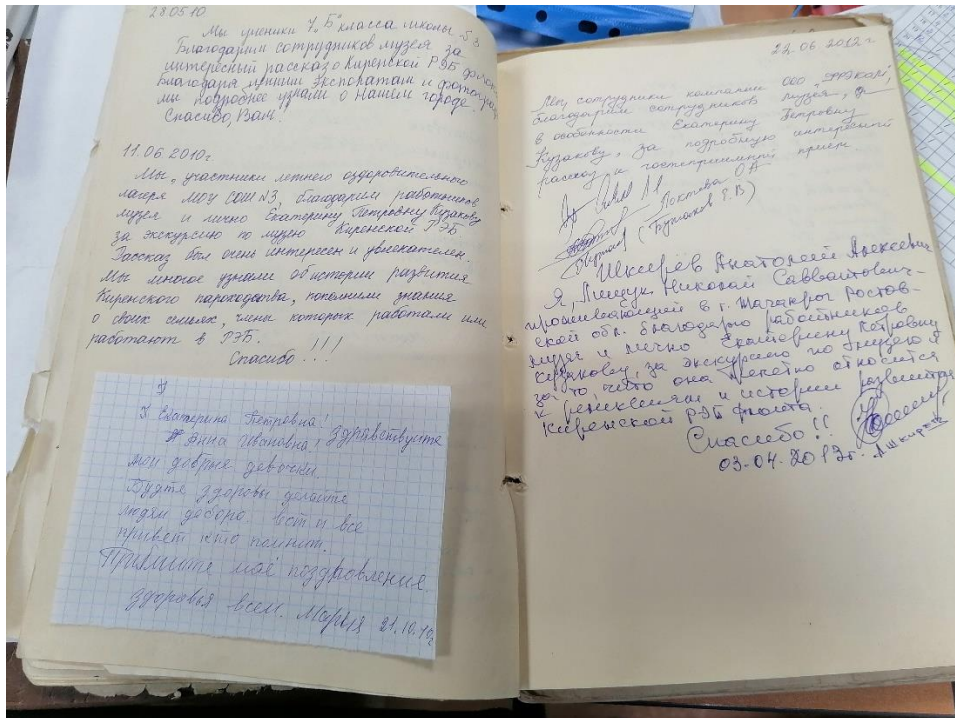 28.05.10
Мы ученики 7 „Б" класса школы №3
Благодарим сотрудников музея за
интересный рассказ о Киренской РЭБ флота
Благодаря вашим Экспоратам и фотографиям
мы подробнее узнали о Нашем городе.
Спасибо, Вам!
11.06.2010г.
Мы, участники летнего оздоровительного
лагеря МОУ СОШ №3, благодарим работников
музея и лично Екатерину Петровну Кузакову
за экскурсию по музею Киренской РЭБ
Рассказ был очень интересен и увлекателен.
Мы многое узнали об истории развития
Киренского пароходства, пополнили знания
о своих семьях, члены которых работали или
работают в РЭБ.
Спасибо!!!
Екатерина Петровна!
Анна Ивановна! Здравствуйте
мои добрые девочки.
Будте здоровы делайте
людям доборо. вот и все
привет кто помнит.
Примите моё поздровление
здоровья всем. Марья 21.10.10г
22.06.2012г.
Мы, сотрудники компании ООО
благодарим сотрудников музея, и
в особенности Екатерину Петровну
Кузакову, за подробную интересный
рассказ и гостеприимный прием.
О А
(Бурлаков Е.В)
Шкирёв Анатолий Алексеевич
Я, Лищук Николай Савватович-
проживающей в г. Таганрог Ростов-
ской обл. благодарю работников
музея и лично Екатерину Петровну
Кузакову, за экскурсию по музею и
за то, что она трепетно относится
к реликвиям и истории развития
Киренской РЭБ флота.
Спасибо!!
03.04.2013г. Ашкирев